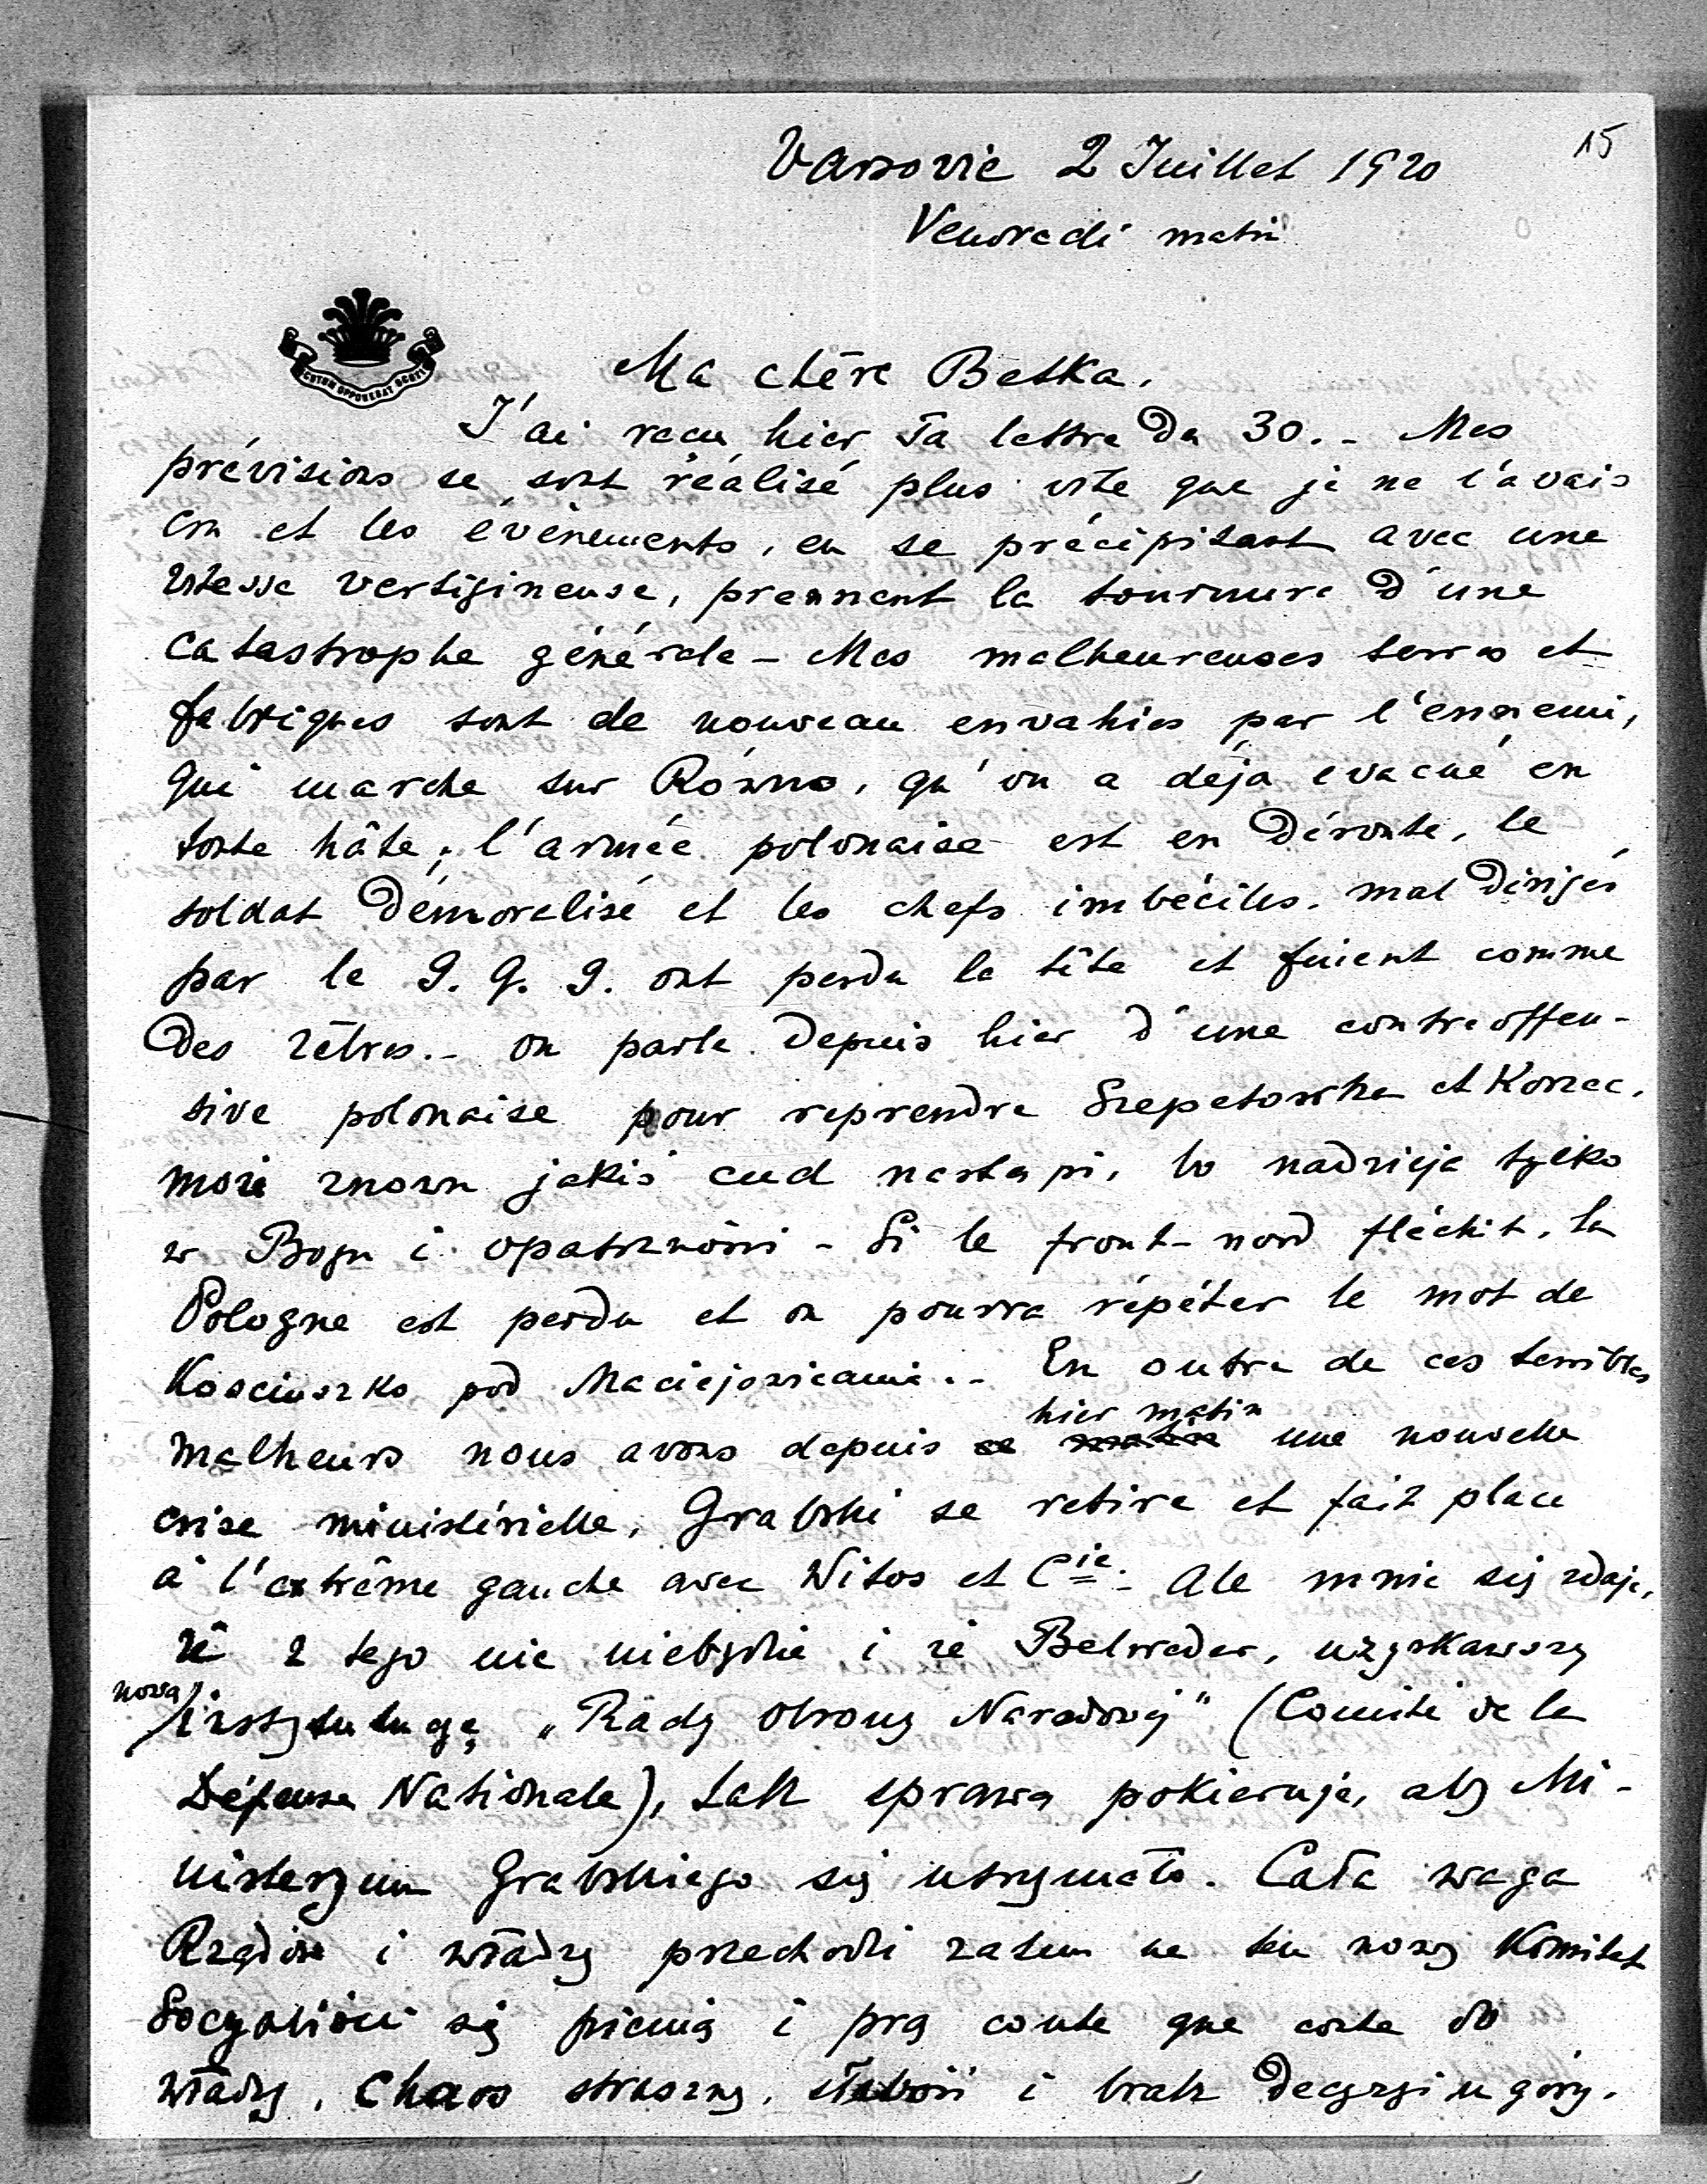 15
Varsovie 2 Juillet 1920
Vendredi matin
CUTOM OPPONEBAT SCUTI
Ma chère Betka.
J'ai reçu hier Ta lettre Du 30. - Mes
prévisions se sont réalisé plus vite que je ne l'avais
cru et les événements, en se précipitant avec une
vitesse vertigineuse, prennent la tournure d'une
catastrophe générale - Mes malheureuses terres et
fabriques sont de nouveau envahies par l'ennemi,
qui marche sur Równo, qu'on a déjà evacué en
toute hâte; l'armée polonaise est en Déroute, le
soldat Démoralisé et les chefs imbéciles. mal Dirigés
par le G. Q. G. ont perdu la tête et fuient comme
Des zèbres. - on parle Depuis hier d'une contreoffen-
sive polonaise pour reprendre Szepetowka et Korzec.
może znowu jakiś cud nastąpi, to nadzieja tylko
w Bogu i opatrzności - Si le front-nord fléchit, la
Pologne est perdu et on pourra répéter le mot de
Kosciuszko pod Maciejowicami. - En outre de ces terribles
hier matin
malheurs nous avons depuis ce matin une nouvelle
crise ministérielle, Grabski se retire et fait place
à l'extrême gauche avec Witos et Cie. - Ale mnie się zdaje,
że z tego nic niebędzie i że Belweder, uzyskawszy
nową
instytucję „Rady Obrony Narodowej" (Comité de la
Défense Nationale), tak sprawą pokieruje, aby Mi-
nisteryum Grabskiego się utrzymało. Cała waga
Rządów i władzy przechodzi zatem na ten nowy Komitet
Socyaliści się pienią i prą coute que coute do
władzy. Chaos straszny, słabość i brak Decyzyi u góry.